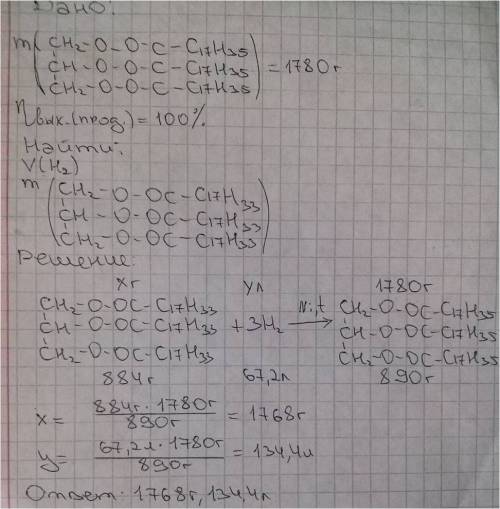 Дано:
m( CH₂-O-O-C-C₁₇H₃₅
CH-O-O-C-C₁₇H₃₅ ) = 1780г
CH₂-O-O-C-C₁₇H₃₅
ηвых.(прод.) = 100%
Найти:
V(H₂)
m( CH₂-O-OC-C₁₇H₃₃
CH-O-OC-C₁₇H₃₃ )
CH₂-O-OC-C₁₇H₃₃
Решение:
xг yл 1780г
CH₂-O-OC-C₁₇H₃₃ Ni,t CH₂-O-OC-C₁₇H₃₅
CH-O-OC-C₁₇H₃₃ + 3H₂ → CH-O-OC-C₁₇H₃₅
CH₂-O-OC-C₁₇H₃₃ CH₂-O-OC-C₁₇H₃₅
884г 67,2л 890г
x = 884г·1780г / 890г = 1768г
y = 67,2л·1780г / 890г = 134,4л
Ответ: 1768г, 134,4л